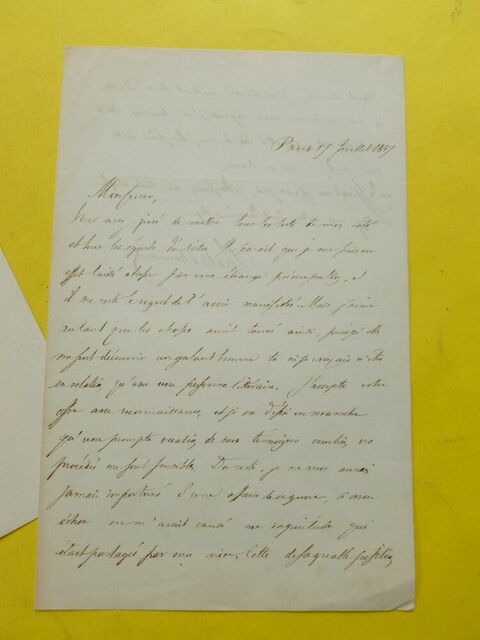 Paris 17 Juillet 1857
Monsieur,
Vous avez juré de mettre tous les torts de mon côté
et tous les égards du vôtre. Il paraît que je me suis
laissé abuser par une étrange préoccupation, et
il me reste le regret de l'avoir manifestée. Mais j'aime
autant que les choses aient tourné ainsi, puisqu'elles
me font découvrir un galant homme là où je croyais n'être
en relation qu'avec une personne littéraire. J'accepte votre
offre avec reconnaissance, et je ne désire en revanche
qu'une prompte occasion de vous témoigner combien vos
procédés me sont sensibles. Du reste, je ne vous aurais
jamais importuné d'une affaire de ce genre, si mon
échec ne m'avait causé une inquiétude qui
était partagée par ma mère. Cette désagréable